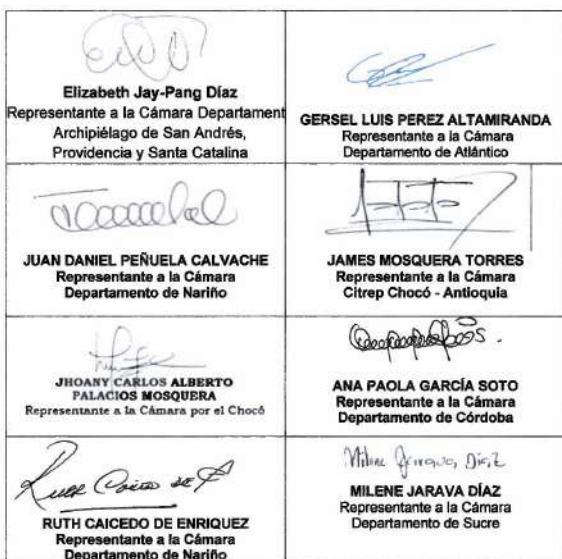 Elizabeth Jay-Pang Díaz
Representante a la Cámara Department
Archipiélago de San Andrés,
Providencia y Santa Catalina
GERSEL LUIS PEREZ ALTAMIRANDA
Representante a la Cámara
Departamento de Atlántico
JUAN DANIEL PEÑUELA CALVACHE
Representante a la Cámara
Departamento de Nariño
JAMES MOSQUERA TORRES
Representante a la Cámara
Citrep Chocó - Antioquia
JHOANY CARLOS ALBERTO
PALACIOS MOSQUERA
Representante a la Cámara por el Chocó
ANA PAOLA GARCÍA SOTO
Representante a la Cámara
Departamento de Córdoba
Ruth Caicedo de E
RUTH CAICEDO DE ENRIQUEZ
Representante a la Cámara
Departamento de Nariño
Milene Jarava Díaz
MILENE JARAVA DÍAZ
Representante a la Cámara
Departamento de Sucre